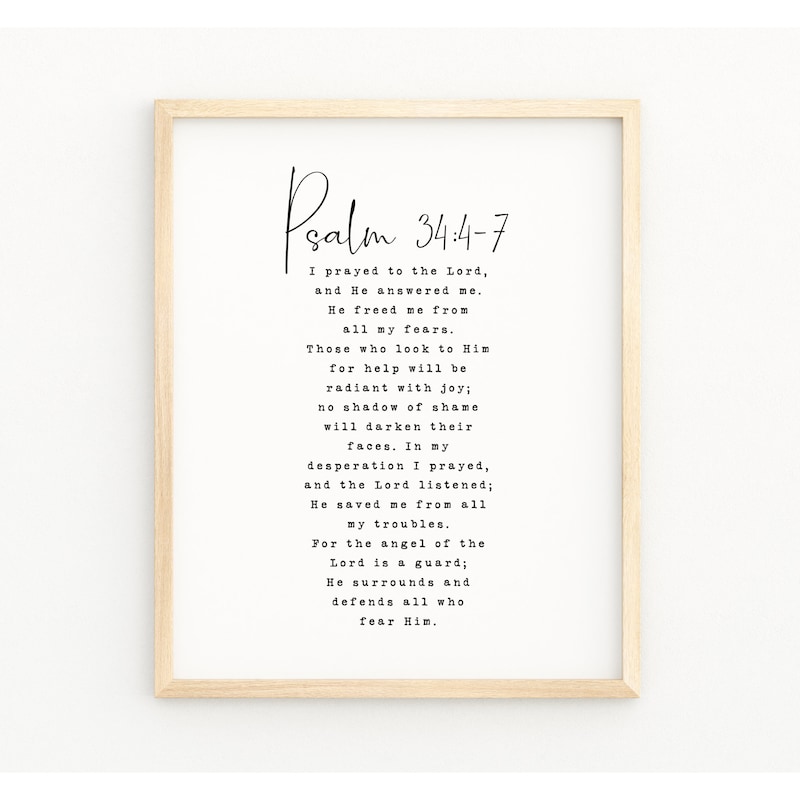 Psalm 34:4-7
I prayed to the Lord,
and He answered me.
He freed me from
all my fears.
Those who look to Him
for help will be
radiant with joy;
no shadow of shame
will darken their
faces. In my
desperation I prayed,
and the Lord listened;
He saved me from all
my troubles.
For the angel of the
Lord is a guard;
He surrounds and
defends all who
fear Him.